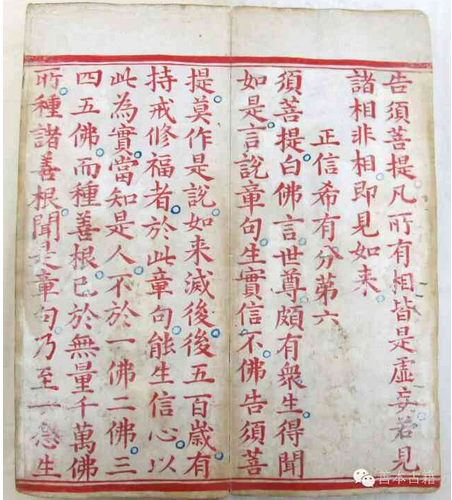 告須菩提凡所有相皆是虛妄若見
諸相非相即見如来
正信希有分第六
須菩提白佛言世尊頗有衆生得聞
如是言說章句生實信不佛告須菩
提莫作是說如来滅後後五百歲有
持戒修福者於此章句能生信心以
此為實當知是人不於一佛二佛三
四五佛而種善根已於無量千萬佛
所種諸善根聞是章句乃至一念生
善本古籍